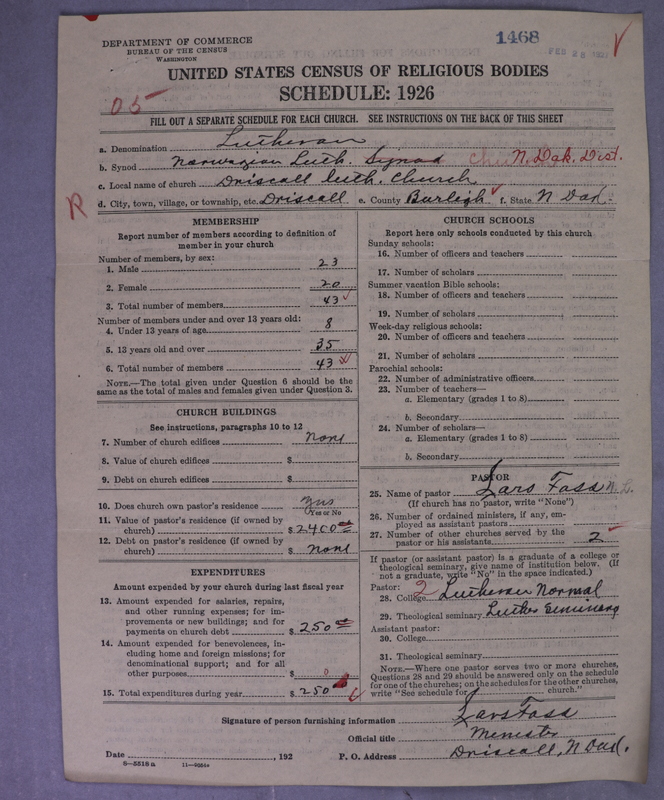 DEPARTMENT OF COMMERCE
BUREAU OF THE CENSUS
WASHINGTON
1468
FEB 28
UNITED STATES CENSUS OF RELIGIOUS BODIES
SCHEDULE: 1926
05
FILL OUT A SEPARATE SCHEDULE FOR EACH CHURCH. SEE INSTRUCTIONS ON THE BACK OF THIS SHEET
a. Denomination Lutheran
b. Synod Norwegian Luth. Synod N. Dak. Dist.
c. Local name of church Driscall Luth. Church
R d. City, town, village, or township, etc. Driscall e. County Burleigh f. State N Dak.
MEMBERSHIP
Report number of members according to definition of
member in your church
Number of members, by sex:
1. Male 23
2. Female 20
3. Total number of members 43
Number of members under and over 13 years old:
4. Under 13 years of age 8
5. 13 years old and over 35
6. Total number of members 43
NOTE.—The total given under Question 6 should be the
same as the total of males and females given under Question 3.
CHURCH BUILDINGS
See instructions, paragraphs 10 to 12
7. Number of church edifices None
8. Value of church edifices $
9. Debt on church edifices $
10. Does church own pastor's residence yes
Yes or No
11. Value of pastor's residence (if owned by
church) $ 2400
12. Debt on pastor's residence (if owned by
church) $ None
EXPENDITURES
Amount expended by church during last fiscal year
13. Amount expended for salaries, repairs,
and other running expenses; for im-
provements or new buildings; and for
payments on church debt $ 250
14. Amount expended for benevolences, in-
cluding home and foreign missions; for
denominational support; and for all
other purposes $ 0
15. Total expenditures during year $ 250
CHURCH SCHOOLS
Report here only schools conducted by this church
Sunday schools:
16. Number of officers and teachers
17. Number of scholars
Summer vacation Bible schools:
18. Number of officers and teachers
19. Number of scholars
Week-day religious schools:
20. Number of officers and teachers
21. Number of scholars
Parochial schools:
22. Number of administrative officers
23. Number of teachers—
a. Elementary (grades 1 to 8)
b. Secondary
24. Number of scholars—
a. Elementary (grades 1 to 8)
b. Secondary
PASTOR
25. Name of pastor Lars Foss N. L.
(If church has no pastor, write "None")
26. Number of ordained ministers, if any, em-
ployed as assistant pastors
27. Number of other churches served by the
pastor or his assistants 2
If pastor (or assistant pastor) is a graduate of a college or
theological seminary, give name of institution below. (If
not a graduate, write "No" in the space indicated.)
Pastor:
28. College 2 Lutheran Normal
29. Theological seminary Luther Seminary
Assistant pastor:
30. College
31. Theological seminary
NOTE.—Where one pastor serves two or more churches,
Questions 28 and 29 should be answered only on the schedule
for one of the churches; on the schedules for the other churches,
write "See schedule for church."
Signature of person furnishing information Lars Foss
Official title Menester
Date , 192 P. O. Address Driscall, N Dak.
8—5518a 11—9664